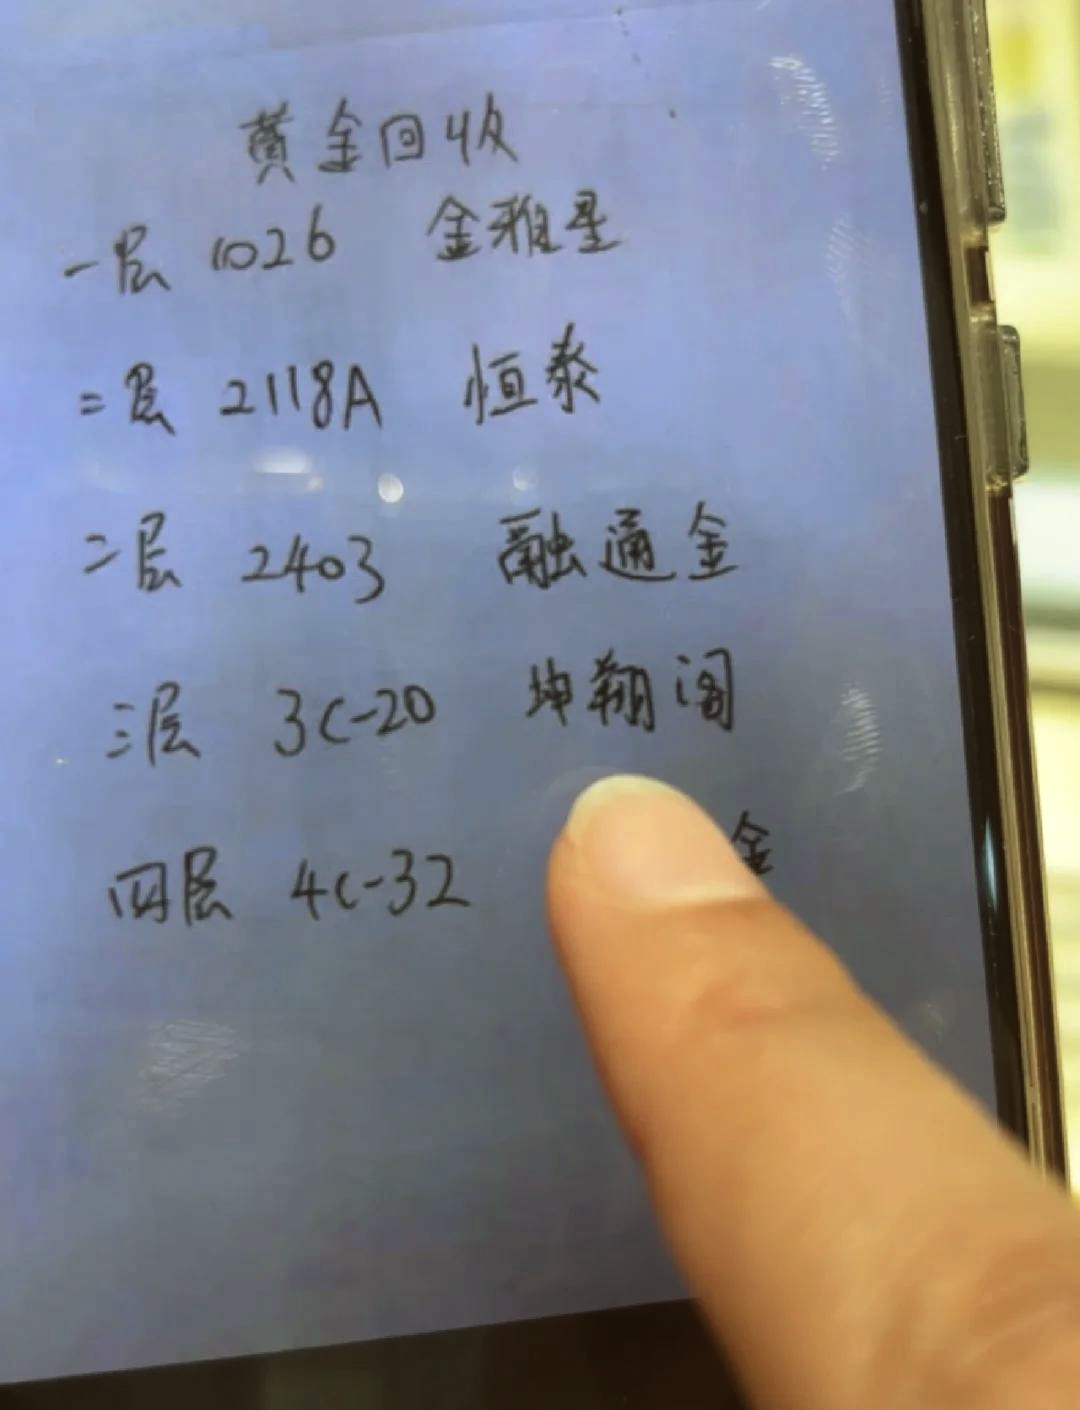 黄金回收
一层 1026 金雅星
二层 2118A 恒泰
二层 2403 融通金
三层 3C-20 坤翔阁
四层 4C-32 金